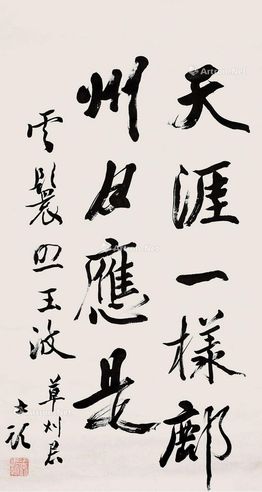 天涯一樣鄜
州月應是
雲鬟照玉
Artron.Net